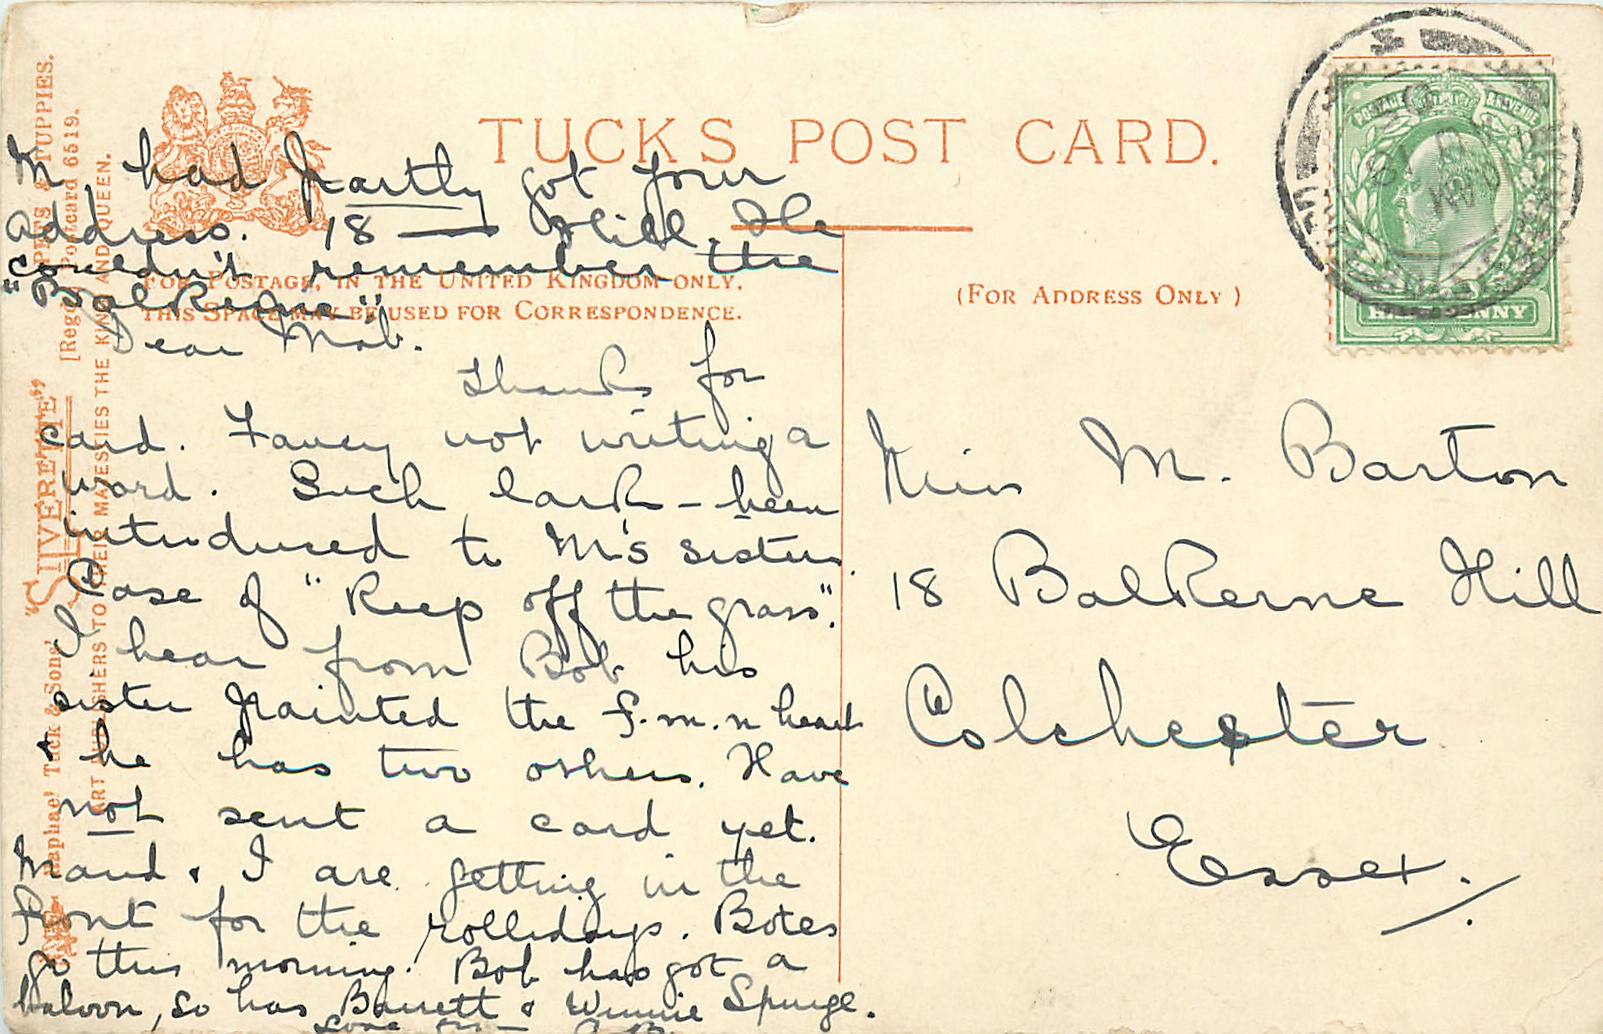 TUCK'S POST CARD.
FOR POSTAGE, IN THE UNITED KINGDOM ONLY,
THIS SPACE MAY BE USED FOR CORRESPONDENCE.
(FOR ADDRESS ONLY)
POSTAGE & REVENUE
HALFPENNY
M. had partly got your
address. 18 — Hill. He
couldn't remember the
"Balkerne".
Dear Mab.
Thanks for
card. Fancy not writing a
word. Such lark – been
introduced to M's sister.
Case of "Keep off the grass".
I hear from Bob his
sister painted the f.m.n heart
& he has two others. Have
not sent a card yet.
Maud & I are getting in the
front for the rollidays. Botes
go this morning. Bob has got a
baloon, so has Barrett & Winnie Spurge.
Love
Miss M. Barton
18 Balkerne Hill
Colchester
Essex.
Raphael Tuck & Sons' "SILVERETTE"
[Regd.] Postcard 6519.
PUPPIES.
ART PUBLISHERS TO THEIR MAJESTIES THE KING AND QUEEN.